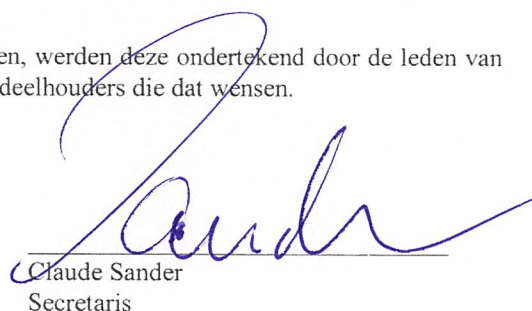 en, werden deze ondertekend door de leden van
deelhouders die dat wensen.
Sander
Claude Sander
Secretaris